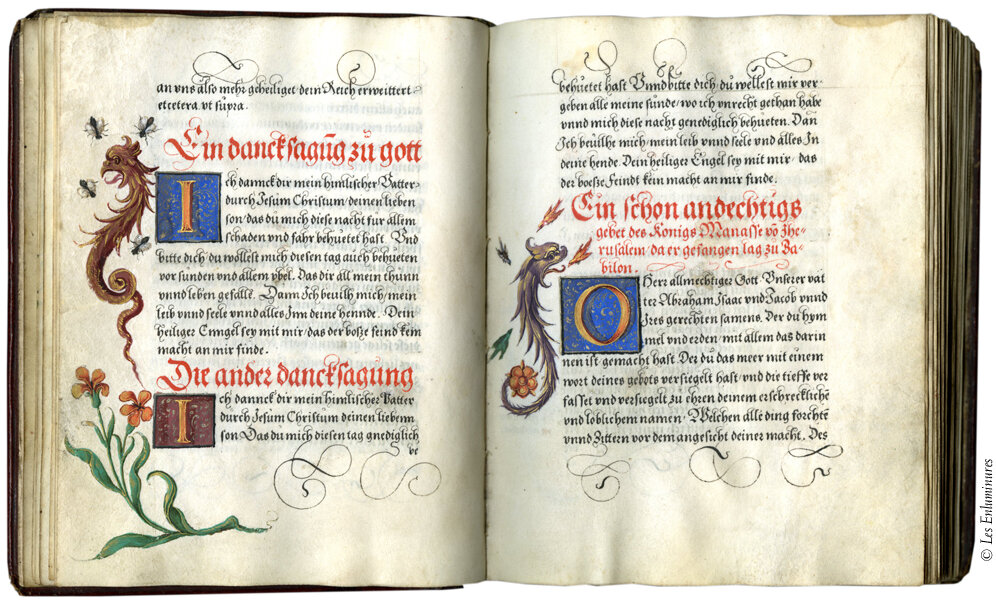 an vns also mehr geheiliget dein Reich erweittert
etcetera vt supra.
Ein dancksagūg zū gott
Ich dannck dir mein himlischer Vatter
durch Jesum Christum deinen lieben
son das du mich diese nacht fur allem
schaden vnd fahr behuetet hast. Vnd
bitte dich du wollest mich diesen tag auch behueten
vor sunden vnd allem vbel. Das dir all mein thunn
vnnd leben gefalle. Dann Ich beuilh mich mein
leib vnnd seele vnnd alles Inn deine hennde. Dein
heiliger Enngel sey mit mir das der boße feind kein
macht an mir finde.
Die ander dancksagung
Ich dannck dir mein himlischer Vatter
durch Jesum Christum deinen liebenn
son Das du mich diesen tag gnediglich
be
behuetet hast Vnnd bitte dich du wellest mir ver
geben alle meine sunde wo ich vnrecht gethan habe
vnnd mich diese nacht genediglich behueten. Dan
Ich beuilhe mich mein leib vnnd seele vnd alles In
deine hende. Dein heiliger Engel sey mit mir das
der boeße Feindt kein macht an mir finde.
Ein schon andechtigs
gebet des Konigs Manasse vō Jhe-
rusalem da er gefangen lag zu Ba-
bilon.
O Herr allmechtiger Gott Vnserer vat
ter Abraham Isaac vnd Jacob vnnd
Ires gerechten samens. Der du hym
mel vnd erden mit allem das darin
nen ist gemacht hast. Der du das meer mit einem
wort deines gebots versiegelt hast vnd die tieffe ver
fasset vnd versiegelt zu ehren deinem erschrecklichē
vnd loblichem namen. Welchen alle ding forchtē
vnnd Zittern vor dem angesicht deiner macht. Des
© Les Enluminures